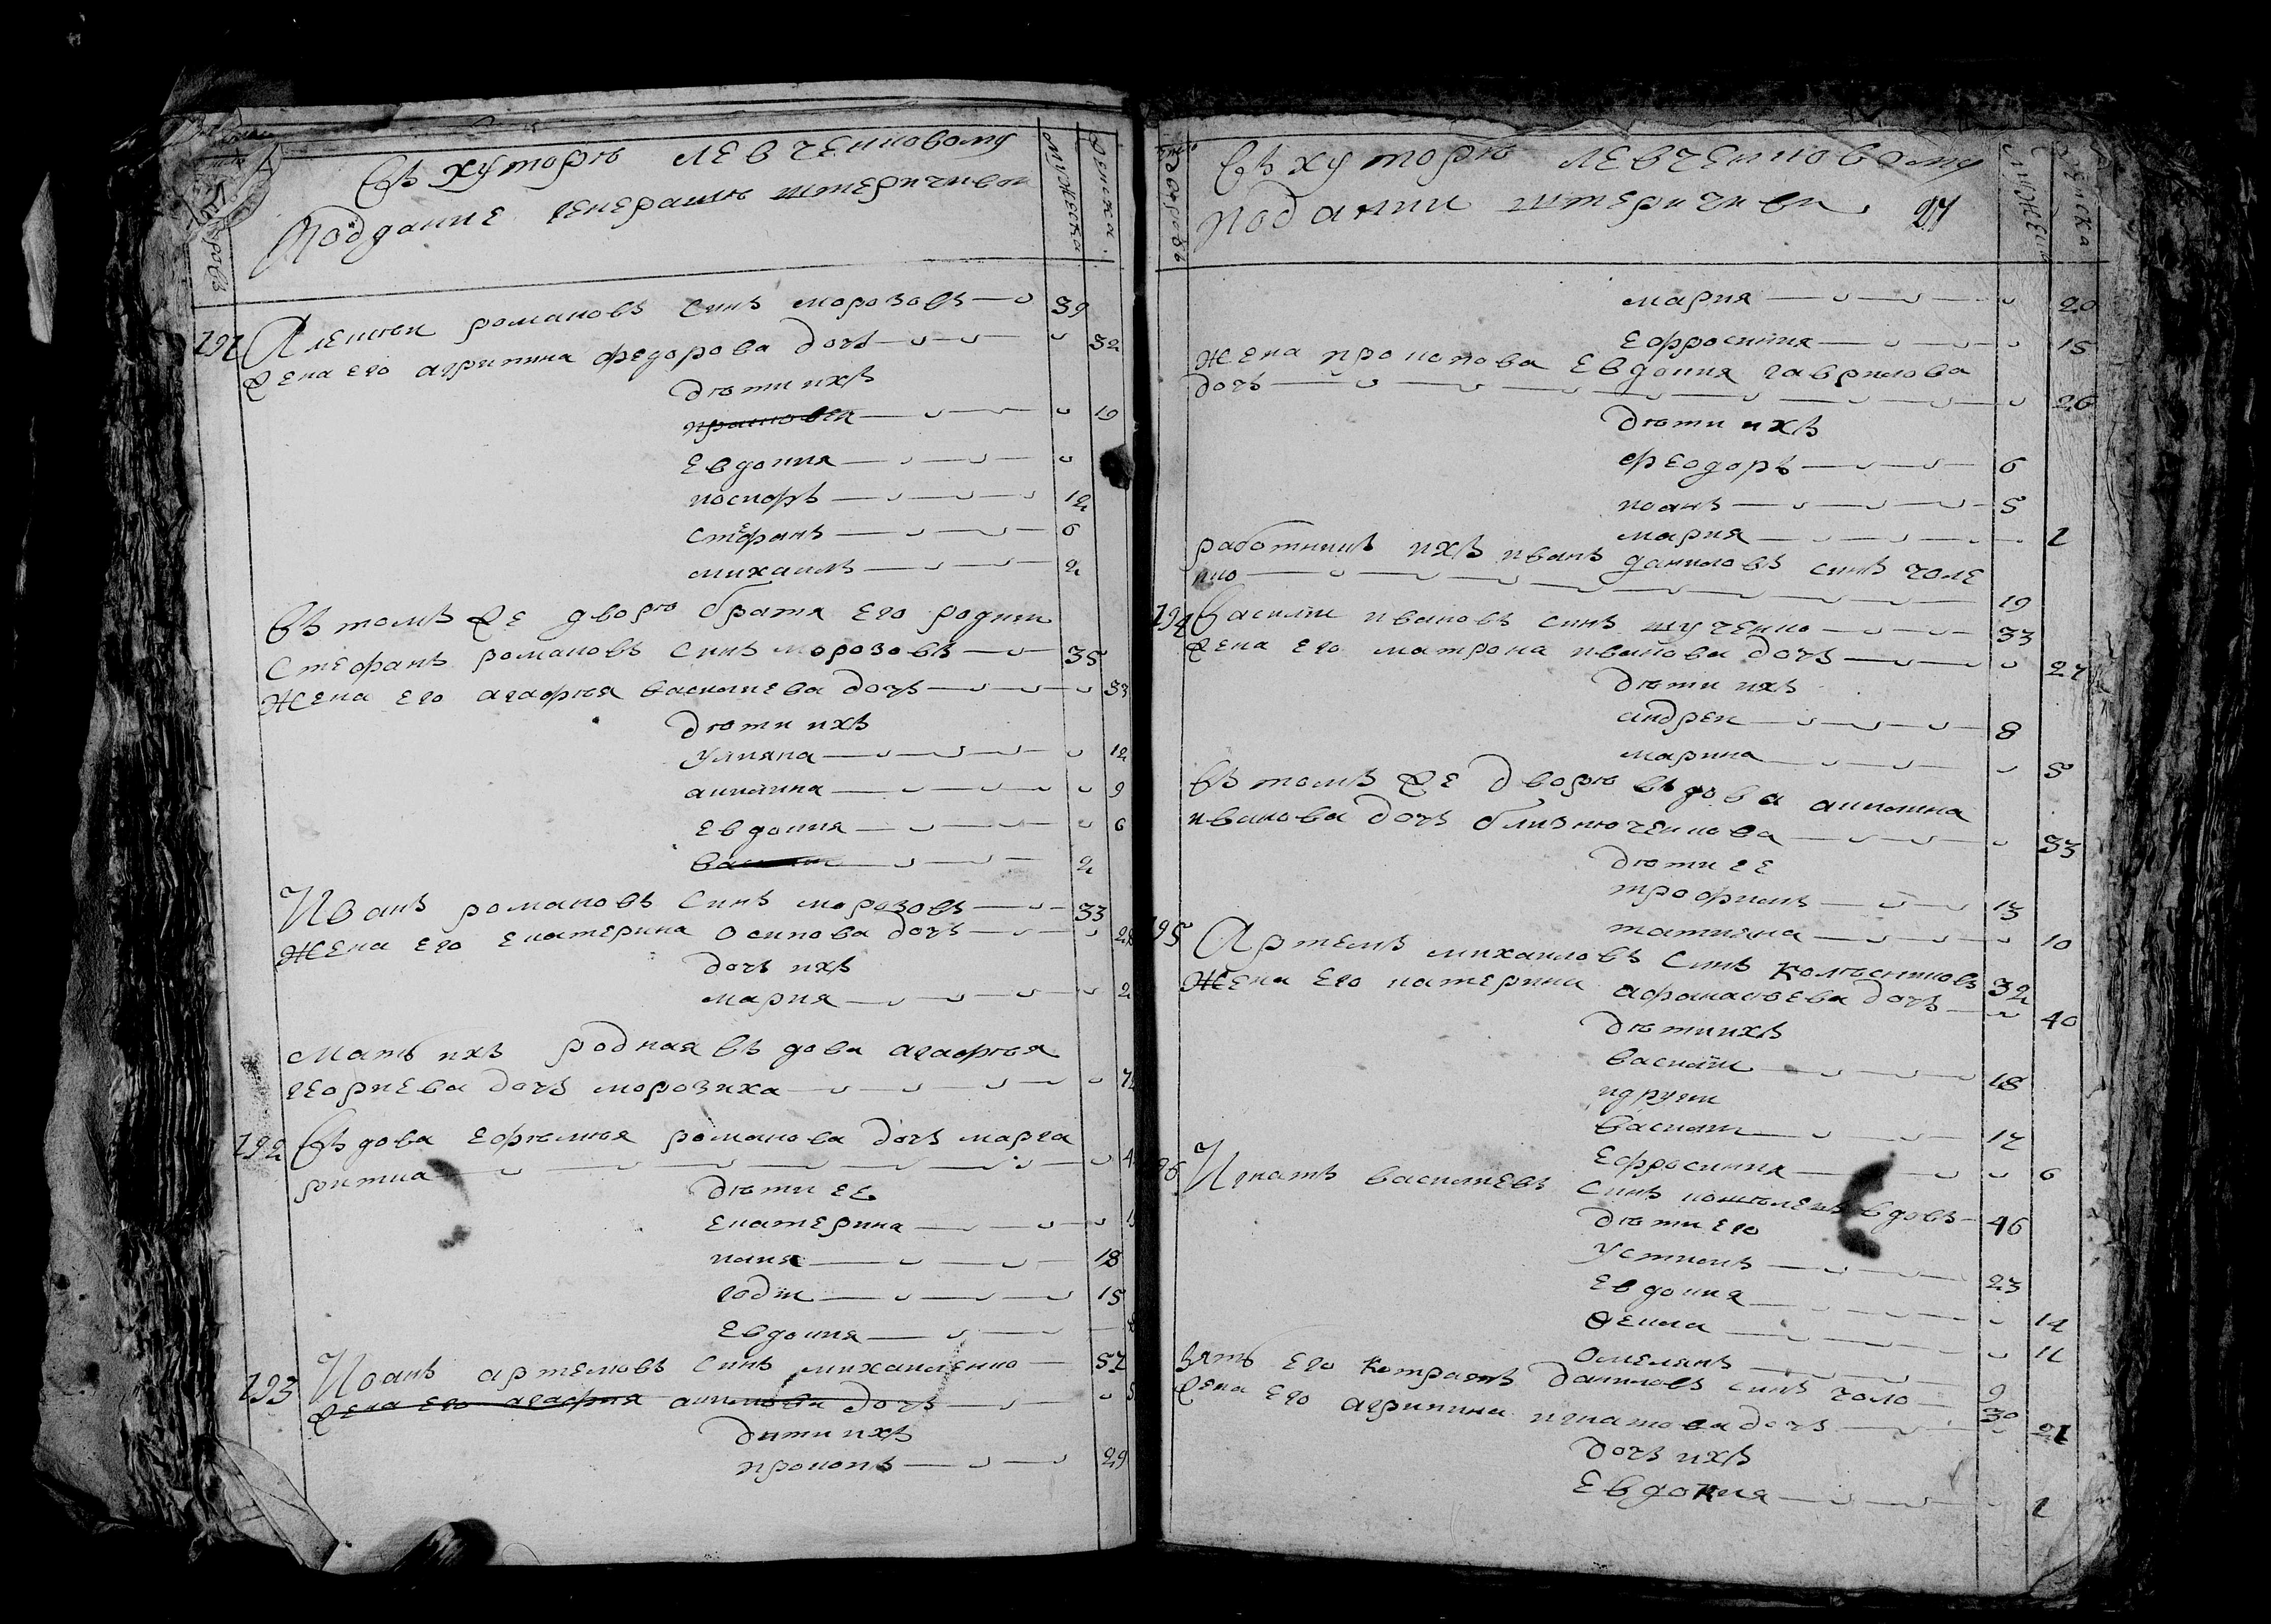 въ хуторѣ левченковому
Поддание генералю штеричивои
мужеска
женска
дворовъ
191 Алексѣи романовъ синъ морозовъ 39
жена его агрипина федорова дочъ 32
дѣти ихъ
прасковея 19
Евдокия
никифоръ 12
стефанъ 6
михаилъ 2
Въ томъ же дворѣ братя его родние
Стефанъ романовъ синъ морозовъ 35
жена его агафѣя василиева дочъ 33
дѣти ихъ
Улияна 12
акилина 9
Евдокия 6
василь 2
Иоанъ романовъ синъ морозовъ 33
жена его екатерина осипова дочъ 28
дочъ ихъ
мария 2
мать ихъ родная въдова агафѣя
георгиева дочъ морозиха
192 Въдова ефимѣя романова дочъ марга
ритина
дѣти ее
Екатерина
илия 18
15
Евдокия
193 Иоанъ артемовъ синъ михаиленко 57
жена его агафия дочъ
дѣти ихъ
прокопъ 29
въ хуторѣ левченковому
Подание штеричеви 27
дворовъ
женска
мария 20
ефросиния 15
жена прокопова Евдокия гаврилова
дочъ 26
дѣти ихъ
феодоръ 6
иоанъ 5
мария 1
работникъ ихъ иванъ даниловъ синъ голе
нко 19
194 Василии ивановъ синъ шученко 33
жена его матрона иванова дочъ 27
дѣти ихъ
андреи 8
марина 5
Въ томъ же дворѣ въдова акилина
иванова дочъ близнюченкова 33
дѣти ее
трофимъ 13
татияна 10
195 Артемъ михаиловъ синъ колѣсниковъ 32
жена его катерина афанасѣева дочъ 40
дѣти ихъ
василии 18
идругии
василии 17
Ефросиния 6
196 Игнатъ василиевъ синъ вдовъ 46
дѣти его
Устимъ 23
Евдокия 14
Ѳекла 11
омелянъ 9
зять его кондратъ даниловъ синъ голо 30
жена его агрипина игнатова дочъ 21
дочъ ихъ
Евдокия 1